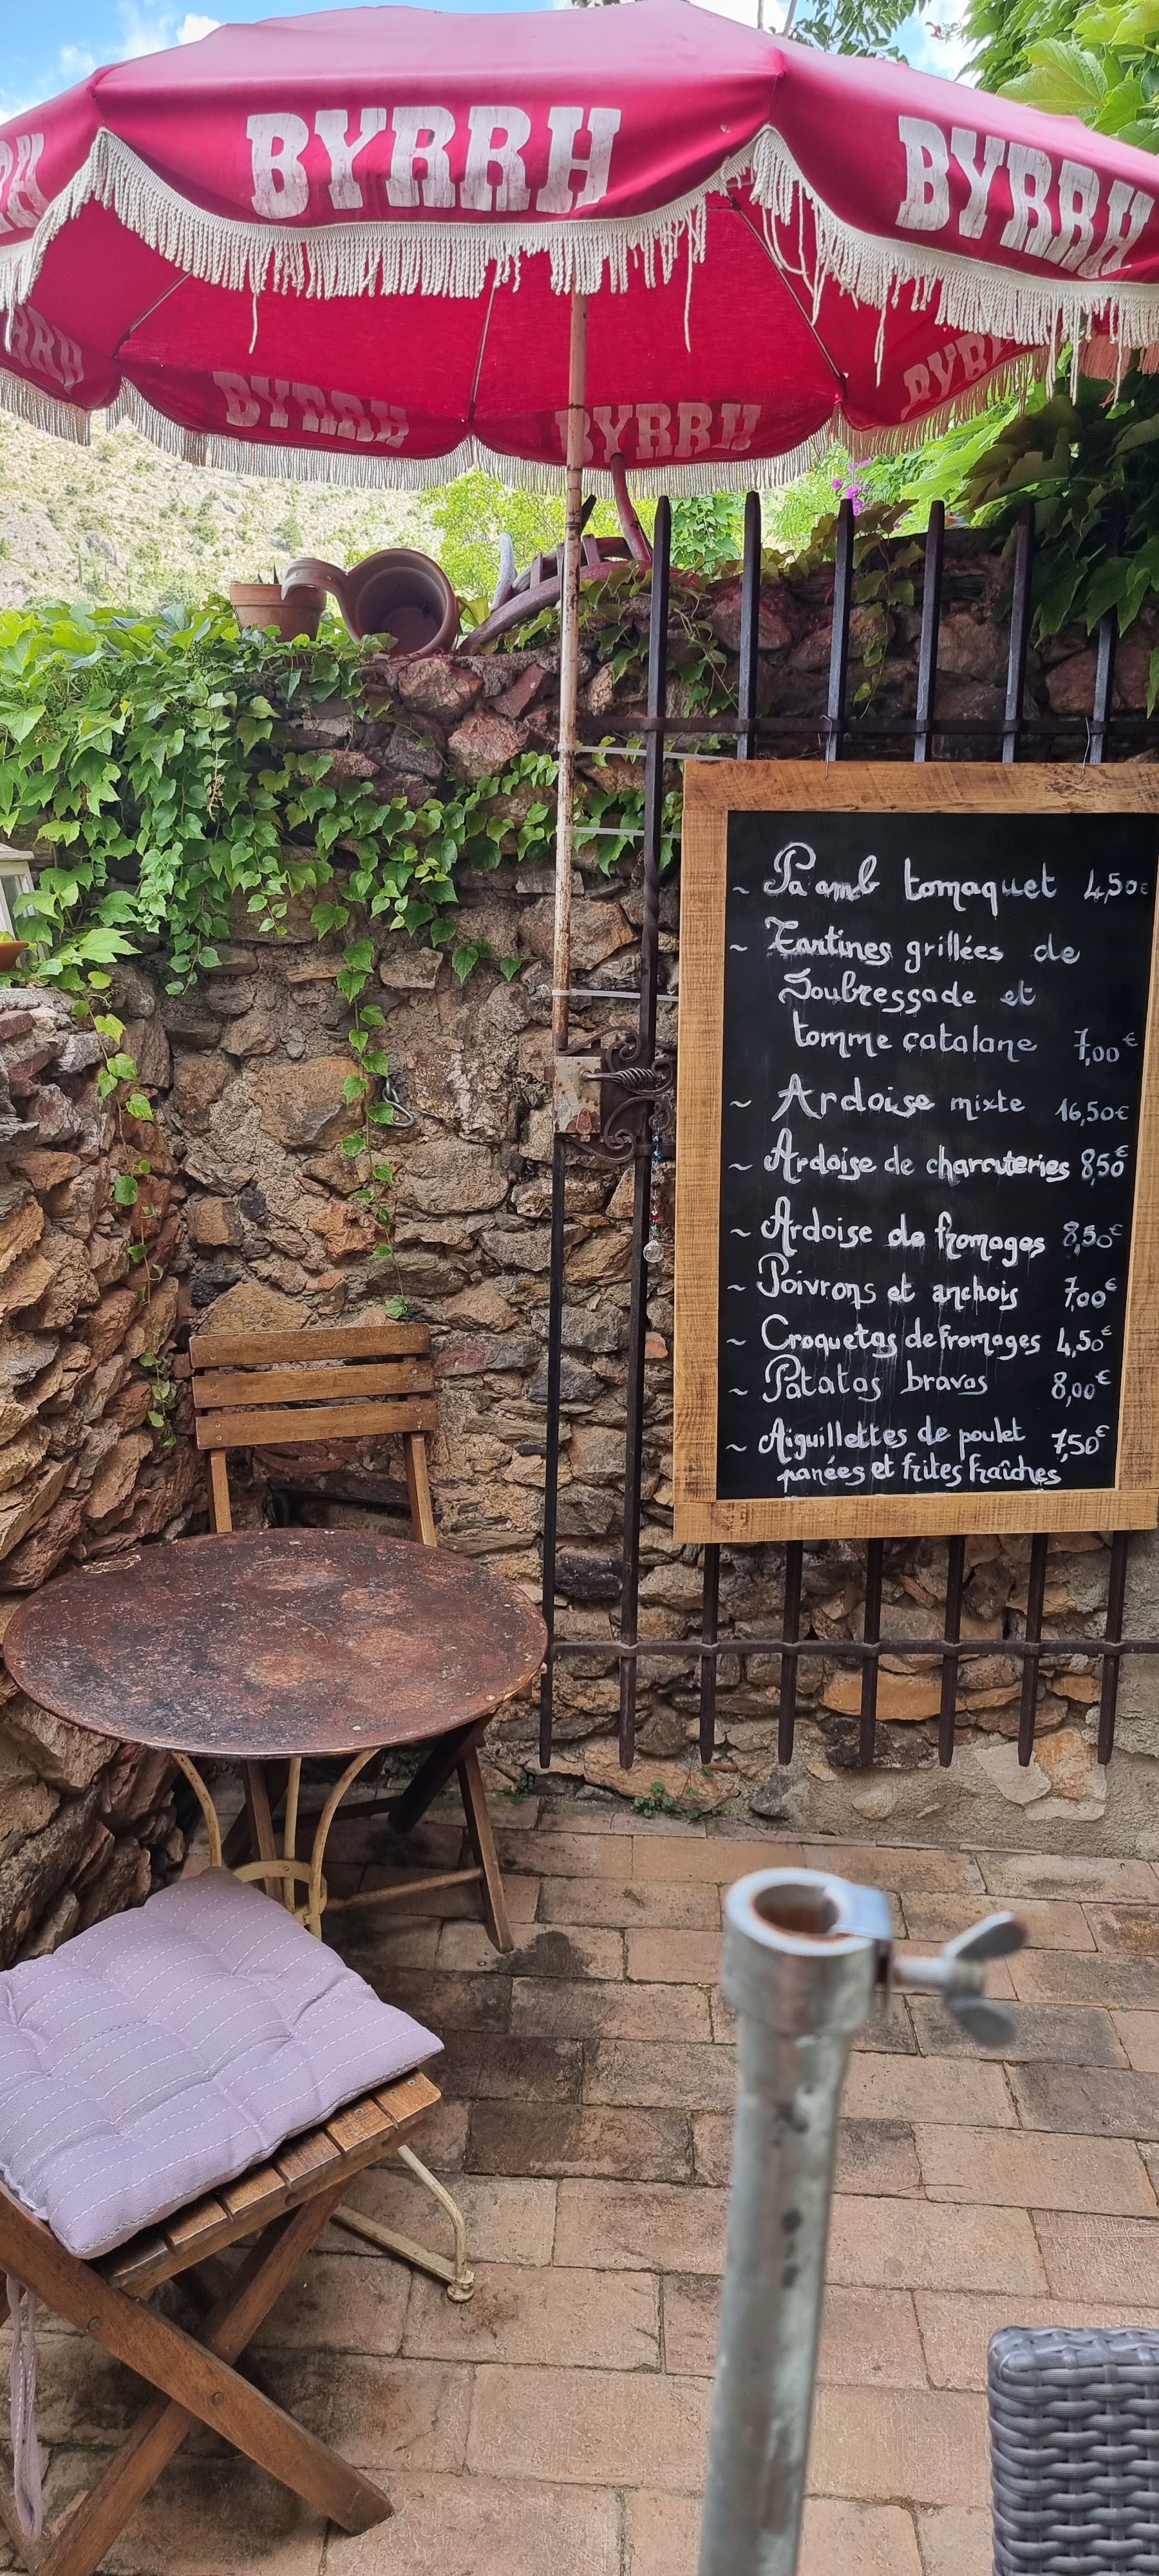 BYRRH
BYRRH
BYRRH
BYRRH
~ Pa amb tomaquet 4,50€
~ Tartines grillées de
Soubressade et
tomme catalane 7,00€
~ Ardoise mixte 16,50€
~ Ardoise de charcuteries 8,50€
~ Ardoise de fromages 8,50€
~ Poivrons et anchois 7,00€
~ Croquetas de fromages 4,50€
~ Patatas bravas 8,00€
~ Aiguillettes de poulet 7,50€
panées et frites fraîches